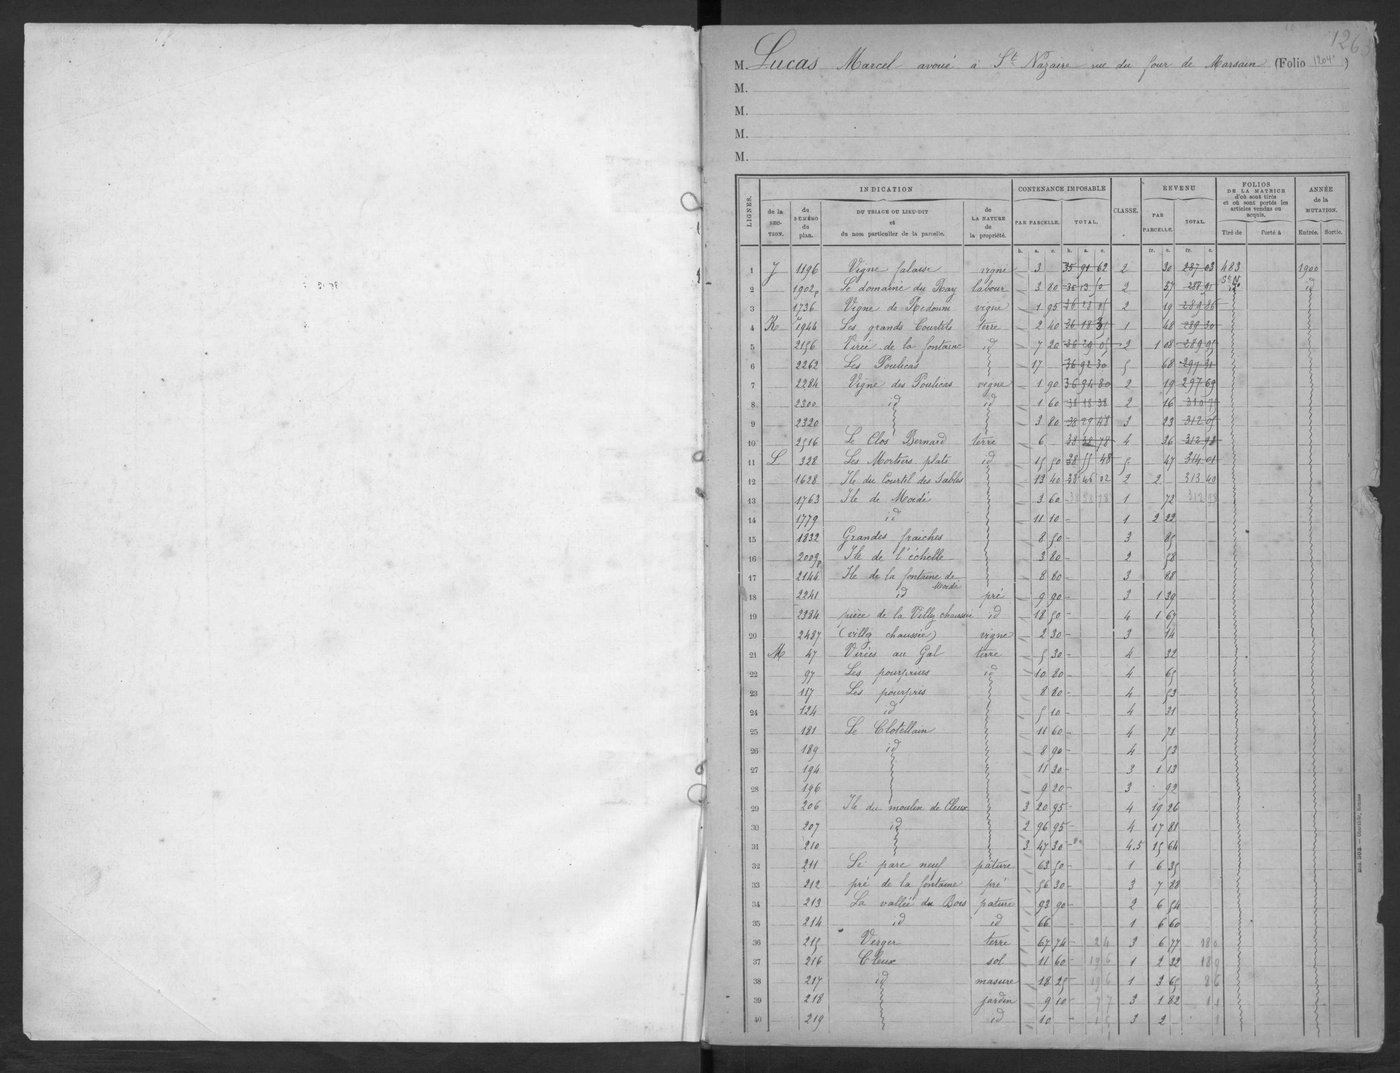 1263
M. Lucas Marcel avoué à St Nazaire rue du four de Marsain (Folio 1204)
M.
M.
M.
M.
LIGNES. INDICATION CONTENANCE IMPOSABLE CLASSE. REVENU FOLIOS DE LA MATRICE d'où sont tirés et où sont portés les articles vendus ou acquis. ANNÉE de la MUTATION.
de la SECTION. du NUMÉRO du plan. DU TRIAGE OU LIEU-DIT et du nom particulier de la parcelle. de LA NATURE de la propriété. PAR PARCELLE. TOTAL. PAR PARCELLE. TOTAL. Tiré de Porté à Entrée. Sortie.
h. a. c. h. a. c. fr. c. fr. c.
1 J 1196 Vigne falaise vigne 3 35 91 62 2 30 287 03 483 1900
2 1902p Le domaine du Bay labour 3 80 2 57 id
3 1736 Vigne de Redouni vigne 1 95 2 19 289 26
4 K 1944 Les grands Courtils terre 2 40 36 18 1 48 289 30
5 2156 Virée de la fontaine id 7 20 2 1 08
6 2262 Les Poulicas 17 36 92 30 5 68 297 31
7 2284 Vigne des Poulicas vigne 1 90 36 94 80 2 19 297 69
8 2300 id id 1 60 38 18 38 2 16
9 2320 3 80 38 27 48 3 23 312 05
10 2516 Le Clos Bernard terre 6 4 36 312 98
11 L 328 Les Mortiers plats id 15 50 38 55 48 5 47 314 01
12 1628 Ile du Courtil des Sables 13 40 38 46 2 2 313 40
13 1763 Ile de Mordé 3 60 1 72
14 1779 id 11 10 1 2 22
15 1832 Grandes fraiches 8 50 3 85
16 2009p Ile de l'échelle 3 80 2 58
17 2144 Ile de la fontaine de Mordé 8 80 3 88
18 2241 id pré 9 90 3 1 39
19 2384 pièce de la Villy chaussée id 18 50 4 1 67
20 2487 (villy chaussée) vigne 2 30 3 14
21 M 47 Virées au Gal terre 5 30 4 32
22 97 Les pourprises id 10 80 4 65
23 117 Les pourpris 8 80 4 53
24 124 id 5 10 4 31
25 181 Le Clotellain 11 60 4 71
26 189 id 8 90 4 53
27 194 11 30 3 1 13
28 196 9 20 3 92
29 206 Ile du moulin de Cleux 3 20 95 4 19 26
30 207 id 2 96 95 4 17 81
31 210 3 47 30 4.5 25 64
32 211 Le parc neuf pâture 63 50 1 6 35
33 212 pré de la fontaine pré 56 30 3 7 88
34 213 La vallée du Bois pature 93 90 2 6 54
35 214 id id 66 1 6 60
36 215 Verger terre 67 74 3 6 77
37 216 Cleux sol 11 60 1 2 32
38 217 id masure 18 25 1 3 65
39 218 jardin 9 10 3 1 82
40 219 id 10 3 2